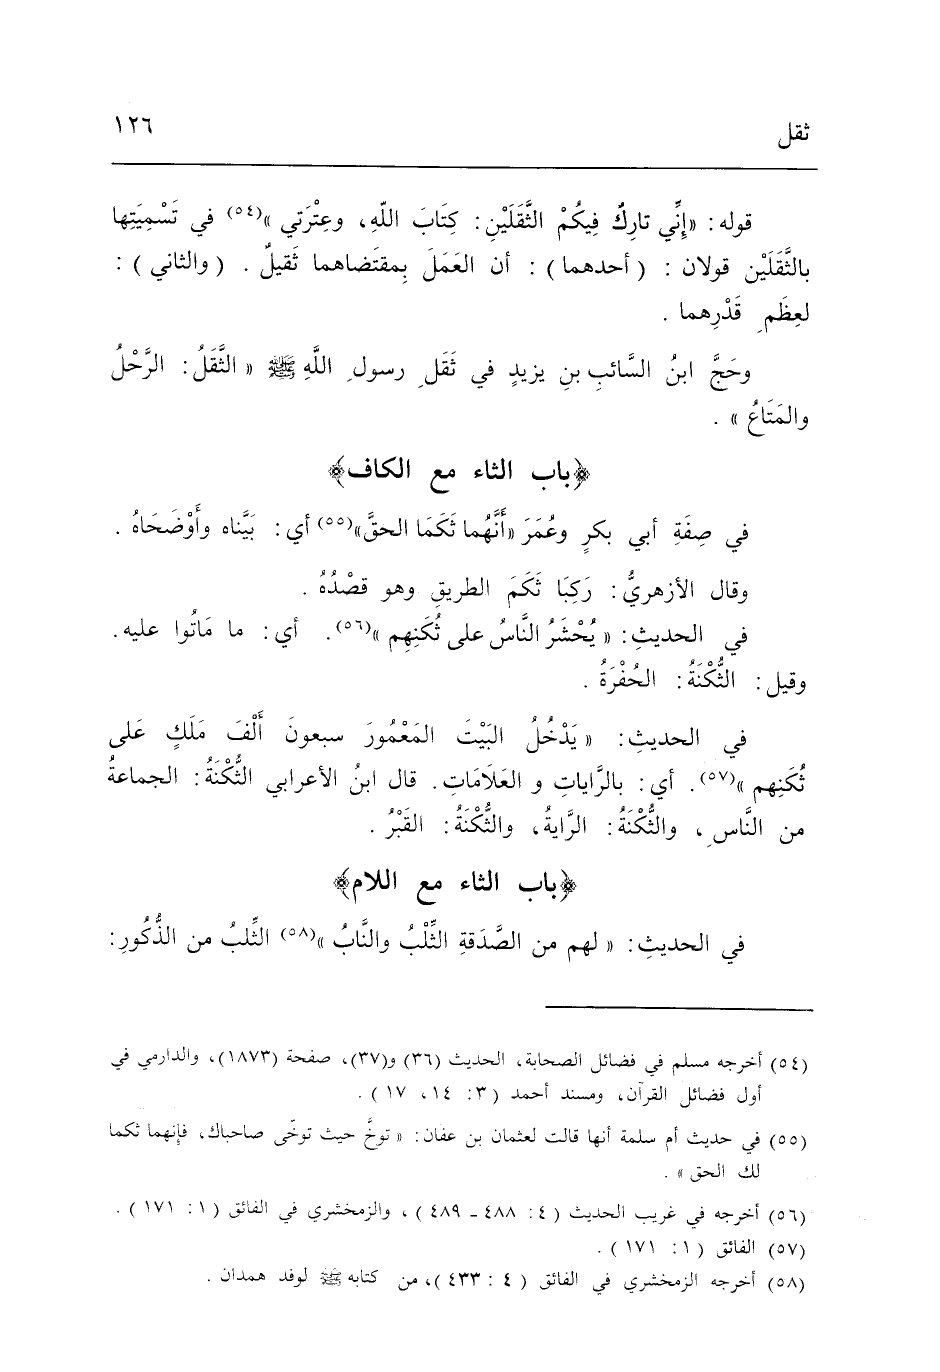 ثقل
١٢٦
قوله: «إِنِّي تارِكٌ فِيكُمْ الثَّقَلَيْنِ: كِتَابَ اللّهِ، وعِتْرَتي»(٥٤) في تَسْمِيَتِها
بالثَّقَلَيْن قولان : (أحدهما) : أن العَمَلَ بِمقتَضاهما ثَقيلٌ . (والثاني) :
لعِظَمِ قَدْرِهما .
وحَجَّ ابنُ السَّائبِ بنِ يزيدٍ في ثَقَلِ رسولِ اللَّهِ ﷺ «الثَّقَلُ: الرَّحْلُ
والمَتَاعُ» .
﴿باب الثاء مع الكاف﴾
في صِفَةِ أبي بكرٍ وعُمَرَ «أَنَّهُما ثَكَمَا الحقَّ»(٥٥) أي: بَيَّناه وأَوْضَحَاهُ .
وقال الأزهريُّ: رَكِبَا ثَكَمَ الطريقِ وهو قصْدُهُ .
في الحديثِ: «يُحْشَرُ النَّاسُ على ثُكَنِهِم»(٥٦). أي: ما مَاتُوا عليه.
وقيل: الثُّكْنَةُ: الحُفْرَةُ .
في الحديثِ: «يَدْخُلُ البَيْتَ المَعْمُورَ سبعونَ أَلْفَ مَلَكٍ عَلى
ثُكَنِهم»(٥٧). أي: بالرَّاياتِ و العَلَامَاتِ. قال ابنُ الأعرابي الثُّكْنَةُ: الجماعةُ
من النَّاسِ، والثُّكْنَةُ: الرَّايةُ، والثُّكْنَةُ: القَبْرُ .
﴿باب الثاء مع اللام﴾
في الحديثِ: «لهم من الصَّدَقةِ الثِّلْبُ والنَّابُ»(٥٨) الثِّلبُ من الذُّكُورِ:
(٥٤) أخرجه مسلم في فضائل الصحابة، الحديث (٣٦) و(٣٧)، صفحة (١٨٧٣)، والدارمي في
أول فضائل القرآن، ومسند أحمد (٣: ١٤، ١٧) .
(٥٥) في حديث أم سلمة أنها قالت لعثمان بن عفان: «توخَّ حيث توخّى صاحباك، فإنهما ثكما
لك الحق» .
(٥٦) أخرجه في غريب الحديث (٤: ٤٨٨ - ٤٨٩)، والزمخشري في الفائق (١: ١٧١) .
(٥٧) الفائق (١: ١٧١) .
(٥٨) أخرجه الزمخشري في الفائق (٤: ٤٣٣)، من كتابه ﷺ لوفد همدان .